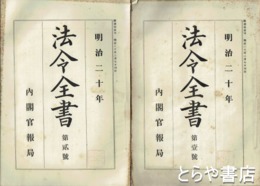 明治二十年
法令全書
第壹號
内閣官報局
明治二十年
法令全書
第貳號
内閣官報局
とらや書店